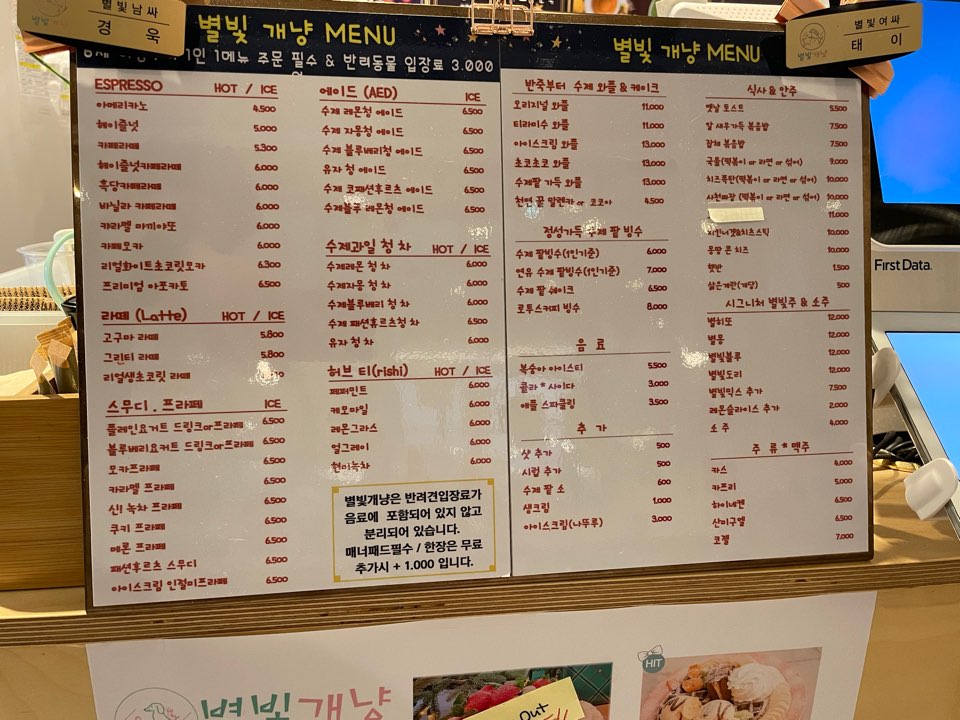 별빛남싸
경 욱
별빛여싸
태 이
별빛개냥
별빛 개냥 MENU
1인 1메뉴 주문 필수 & 반려동물 입장료 3.000
ESPRESSO HOT / ICE
아메리카노 4.500
헤이즐넛 5.000
카페라떼 5.300
헤이즐넛카페라떼 6.000
흑당카페라떼 6.000
바닐라 카페라떼 6.000
캬라멜 마끼야또 6.000
카페모카 6.000
리얼화이트초코릿모카 6.300
프리미엄 아포카토 6.500
라떼 (Latte) HOT / ICE
고구마 라떼 5.800
그린티 라떼 5.800
리얼생초코릿 라떼
스무디 . 프라페 ICE
플레인요거트 드링크or프라페 6.500
블루베리요커트 드링크or프라페 6.500
모카프라페 6.500
카라멜 프라페 6.500
신! 녹차 프라페 6.500
쿠키 프라페 6.500
메론 프라페 6.500
패션후르츠 스무디 6.500
아이스크림 인절미프라페 6.500
에이드 (AED) ICE
수제 레몬청 에이드 6.500
수제 자몽청 에이드 6.500
수제 블루베리청 에이드 6.500
유자 청 에이드 6.500
수제 코패션후르츠 에이드 6.500
수제블루 레몬청 에이드 6.500
수제과일 청 차 HOT / ICE
수제레몬 청 차 6.000
수제자몽 청 차 6.000
수제블루베리 청 차 6.000
수제 패션훌르츠청 차 6.000
유자 청 차 6.000
허브 티(rishi) HOT / ICE
페퍼민트 6.000
케모마일 6.000
레몬그라스 6.000
얼그레이 6.000
현미녹차 6.000
별빛개냥은 반려견입장료가
음료에 포함되어 있지 않고
분리되어 있습니다.
매너패드필수 / 한장은 무료
추가시 + 1.000 입니다.
별빛 개냥 MENU
반죽부터 수제 와플 & 케이크
오리지널 와플 11,000
티라미수 와플 11,000
아이스크림 와플 13,000
초코초코 와플 13,000
수제팥 가득 와플 13,000
천연 꿀 말렌카 or 코코아 4.500
정성가득 수제 팥 빙수
수제 팥빙수(1인기준) 6,000
연유 수제 팥빙수(1인기준) 7,000
수제 팥 쉐이크 6.500
로투스커피 빙수 8,000
음 료
복숭아 아이스티 5.500
콜라 * 사이다 3.000
애플 스파클링 3.500
추 가
샷 추가 500
시럽 추가 500
수제 팥 소 600
생크림 1.000
아이스크림(나뚜루) 3,000
식사 & 안주
옛날 토스트 5.500
알 새우가득 볶음밥 7.500
잡채 볶음밥 7.500
국물(떡볶이 or 라면 or 섞어) 9.000
치즈폭탄(떡볶이 or 라면 or 섞어) 10,000
사천짜장 (떡볶이 or 라면 or 섞어) 10,000
11,000
치킨너겟&치츠스틱 10,000
몽땅 콘 치즈 10,000
햇반 1.500
삶은계란(개당) 500
시그니처 별빛주 & 소주
별히또 12,000
별몽 12,000
별빛블루 12,000
별빛도리 12,000
별빛믹스 추가 7.500
레몬슬라이스 추가 2,000
소 주 4,000
주 류 * 맥주
카스 4,000
카프리 5.000
하이네켄 6.500
산미구엘 6.500
코젤 7,000
First Data.
별빛개냥
Out
HIT